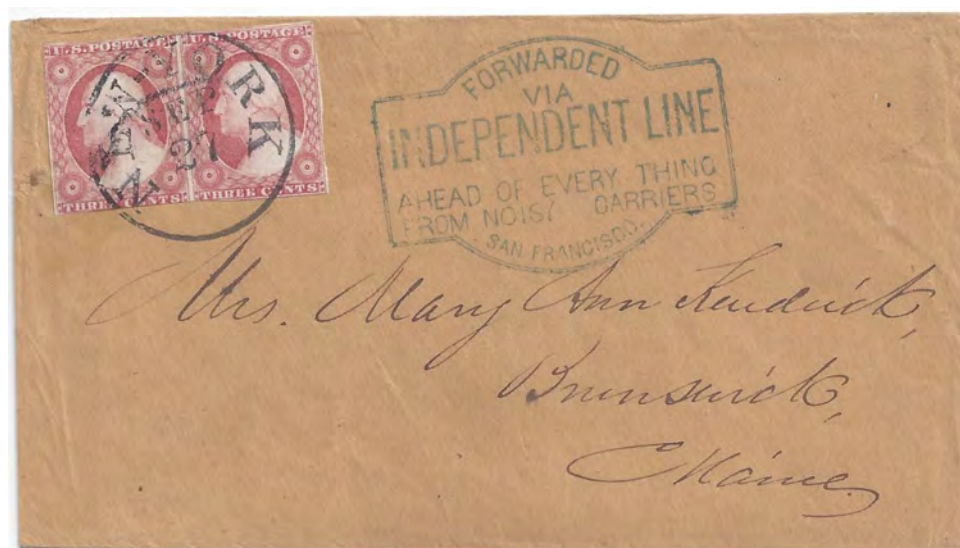 U.S. POSTAGE U.S. POSTAGE
THREE CENTS THREE CENTS
NEW-YORK
27
FORWARDED
VIA
INDEPENDENT LINE
AHEAD OF EVERY THING
FROM NO 157 CARRIERS
SAN FRANCISCO.
Mrs. Mary Ann Kendrick,
Brunswick,
Maine